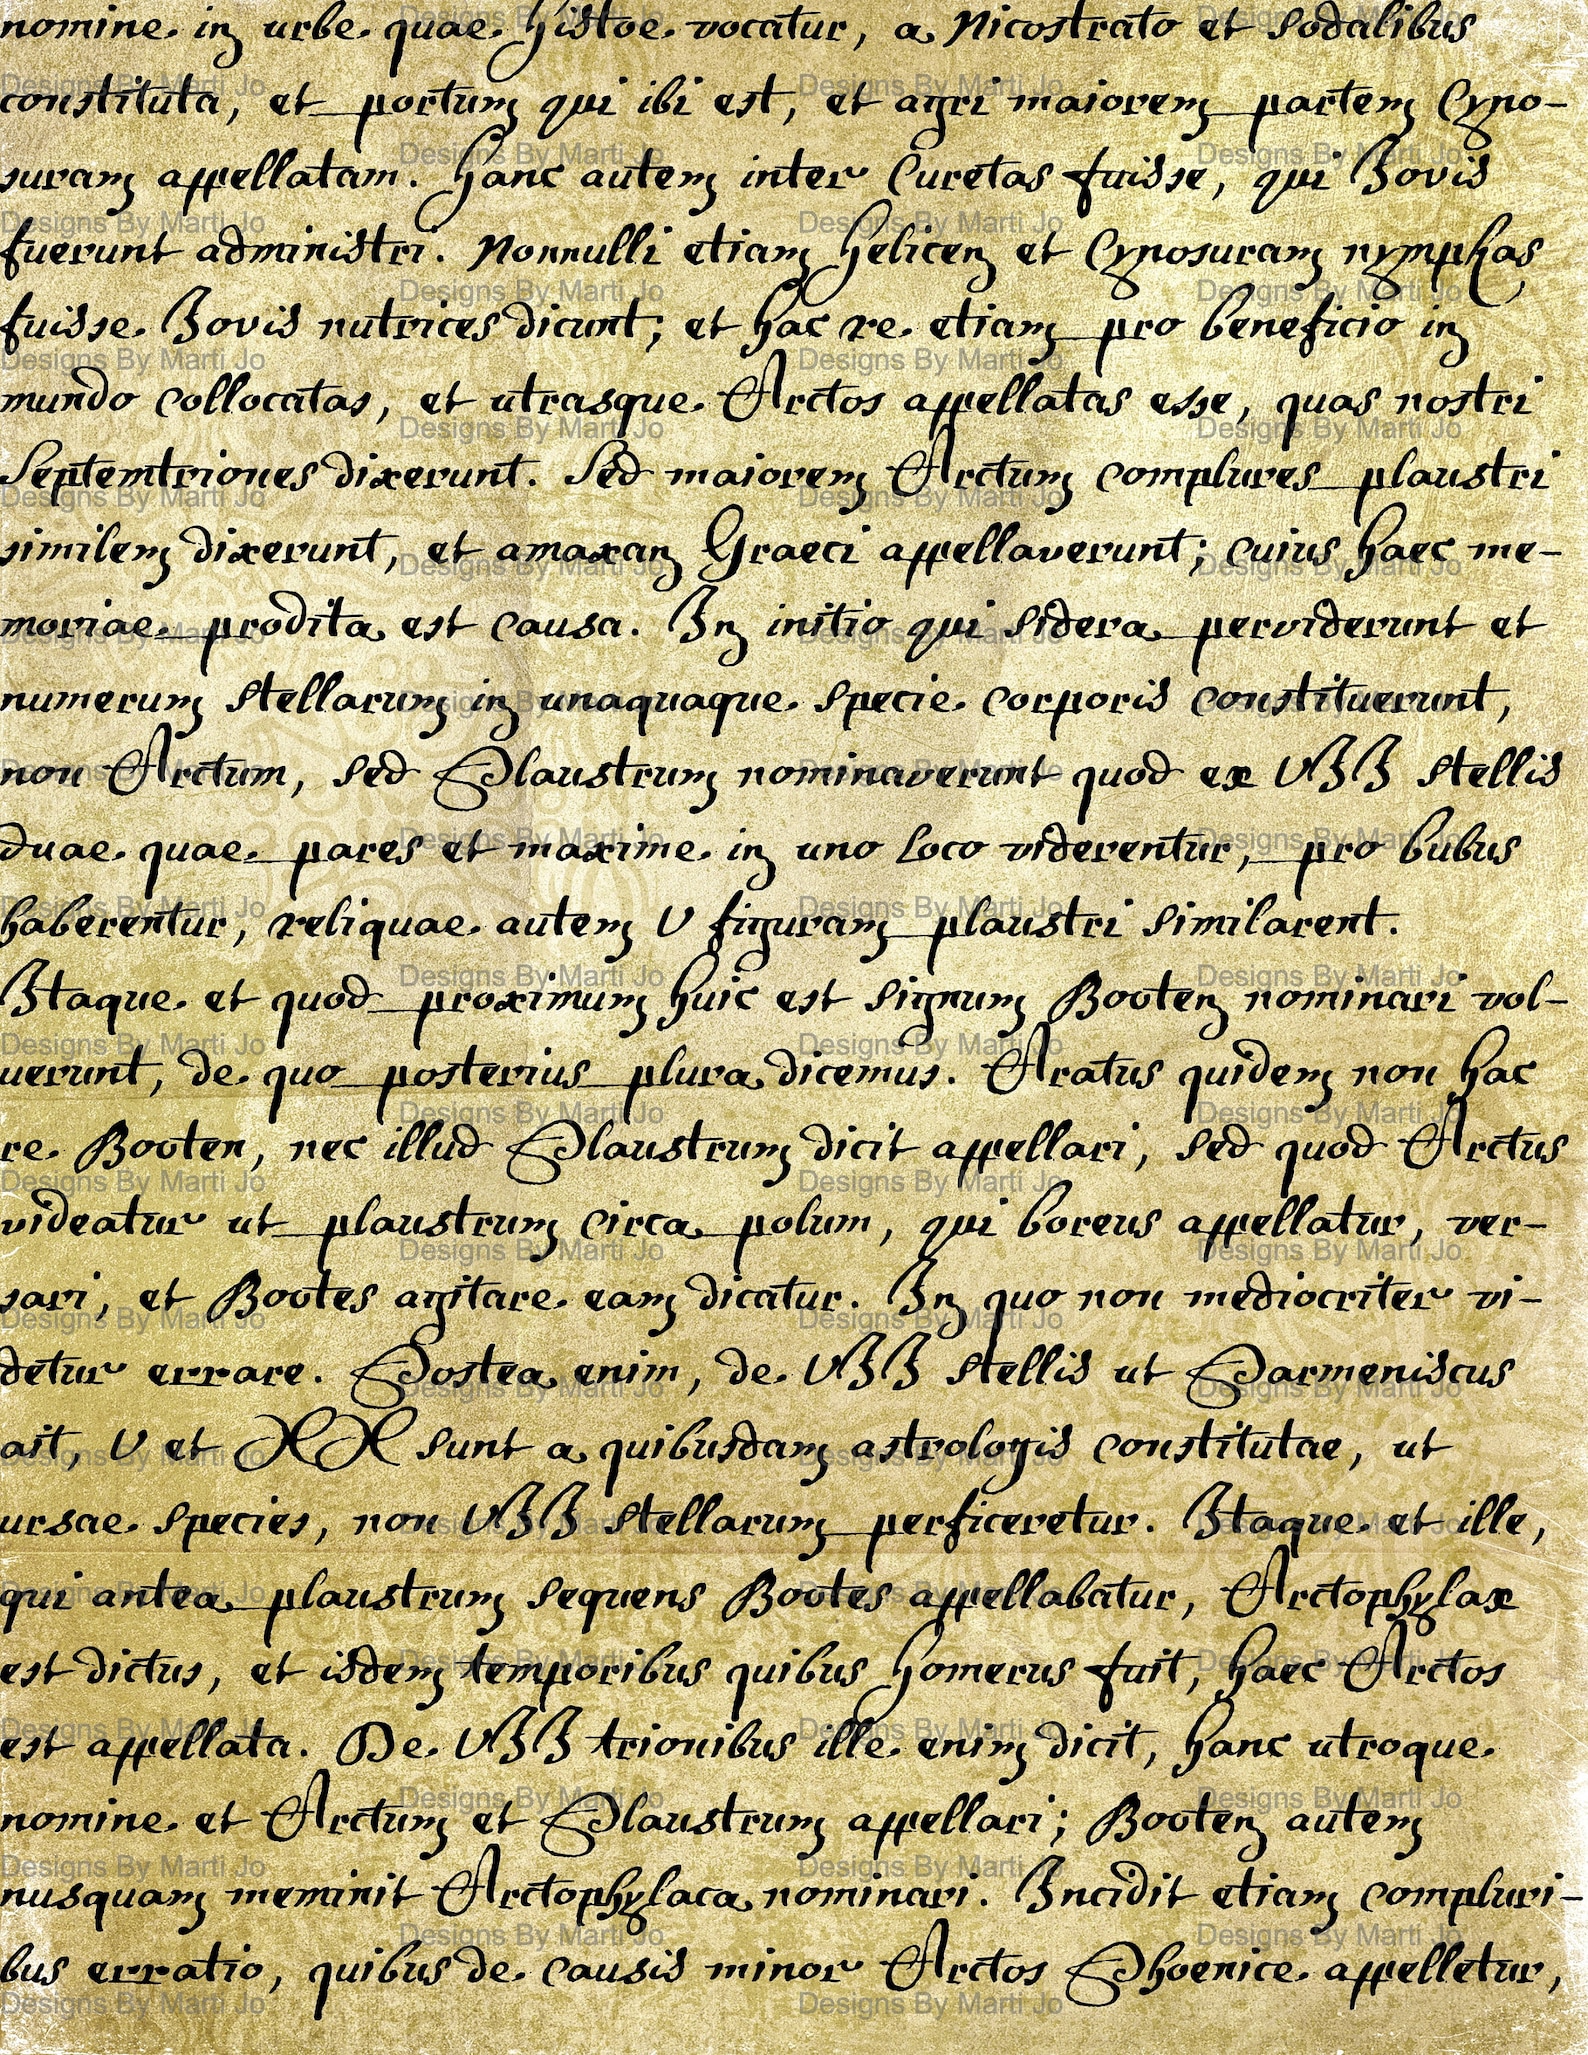 nomine in urbe quae Histoe vocatur, a Nicostrato et sodalibus
constituta, et portum qui ibi est, et agri maiorem partem Cyno-
suram appellatam. Hanc autem inter Curetas fuisse, qui Iovis
fuerunt administri. Nonnulli etiam Helicen et Cynosuram nymphas
fuisse Iovis nutrices dicunt; et hac re etiam pro beneficio in
mundo collocatas, et utrasque Arctos appellatas esse, quas nostri
Septemtriones dixerunt. Sed maiorem Arctum complures plaustri
similem dixerunt, et amaxan Graeci appellaverunt; cuius haec me-
moriae prodita est causa. In initio qui sidera perviderunt et
numerum stellarum in unaquaque specie corporis constituerunt,
non Arctum, sed Plaustrum nominaverunt quod ex VII stellis
duae quae pares et maxime in uno loco viderentur, pro bubus
haberentur, reliquae autem V figuram plaustri similarent.
Itaque et quod proximum huic est signum Booten nominari vol-
uerunt, de quo posterius plura dicemus. Aratus quidem non hac
re Booten, nec illud Plaustrum dicit appellari, sed quod Arctus
videatur ut plaustrum circa polum, qui boreus appellatur, ver-
sari, et Bootes agitare eam dicatur. In quo non mediocriter vi-
detur errare. Postea enim, de VII stellis ut Parmeniscus
ait, V et XX sunt a quibusdam astrologis constitutae, ut
ursae species, non VII stellarum perficeretur. Itaque et ille,
qui antea plaustrum sequens Bootes appellabatur, Arctophylax
est dictus, et isdem temporibus quibus Homerus fuit, haec Arctos
est appellata. De VII trionibus ille enim dicit, hanc utroque
nomine et Arctum et Plaustrum appellari; Booten autem
nusquam meminit Arctophylaca nominari. Incidit etiam compluri-
bus erratio, quibus de causis minor Arctos Phoenice appelletur,
Designs By Marti Jo